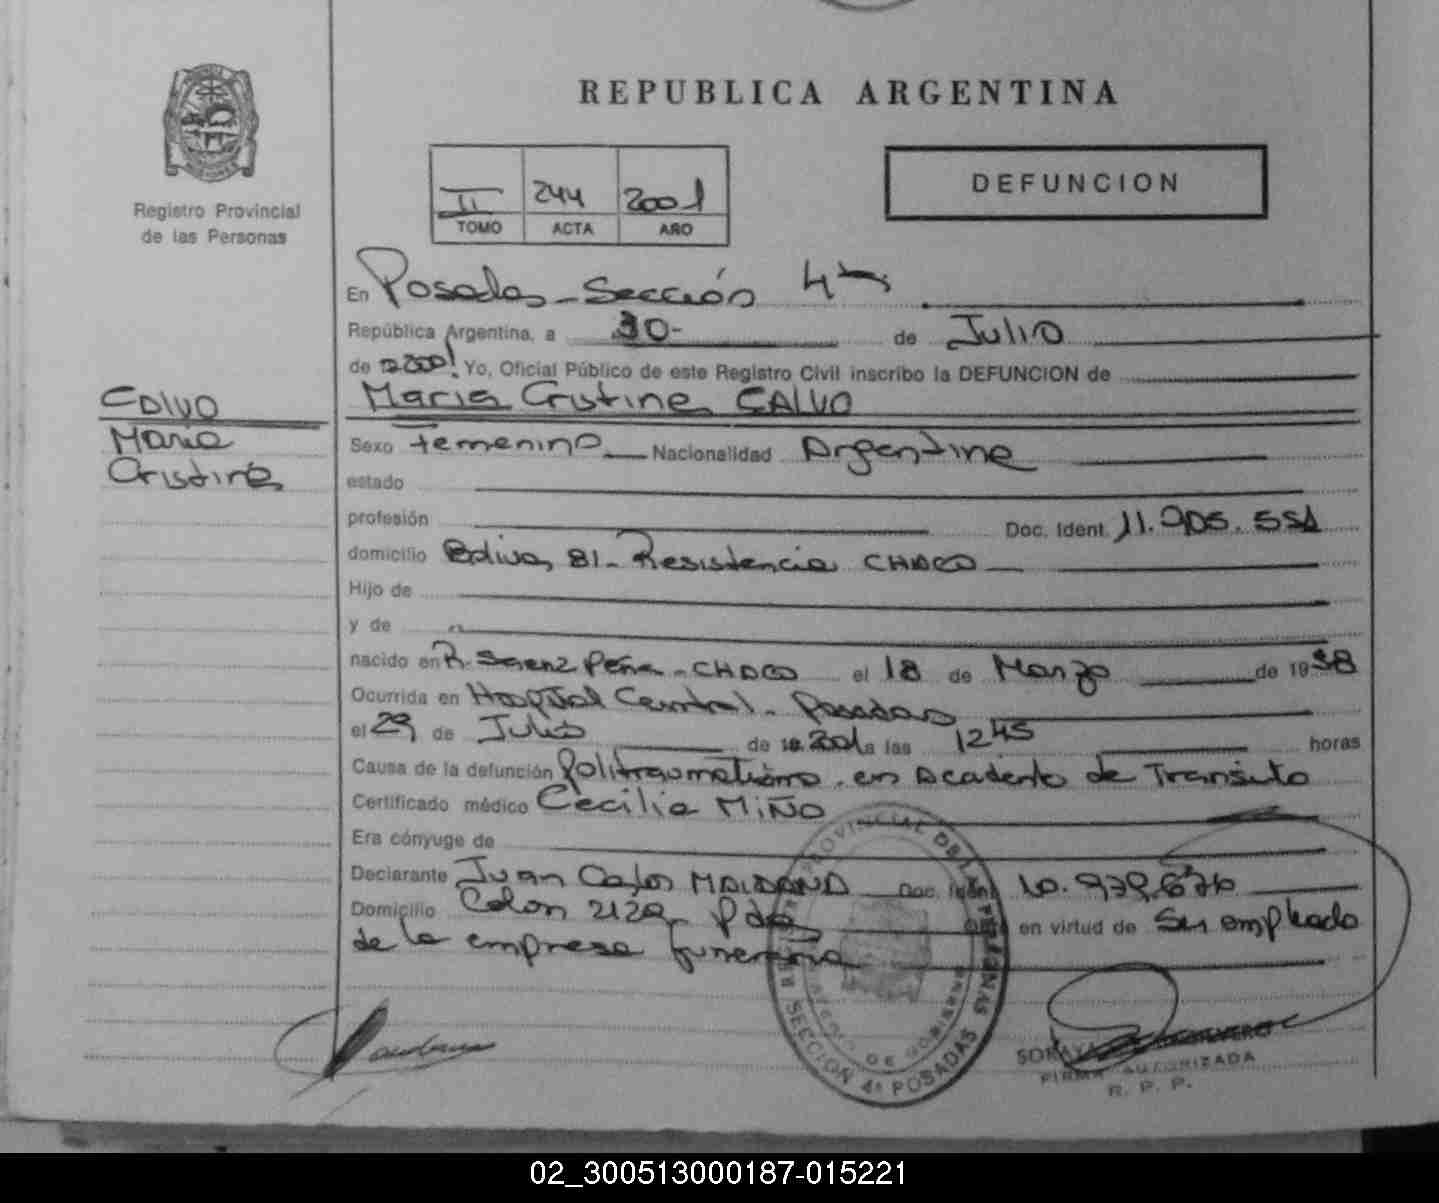 REPUBLICA ARGENTINA
Registro Provincial
de las Personas
II 244 2001
TOMO ACTA AÑO
DEFUNCION
En Posadas - Sección 4ta
República Argentina, a 30- de Julio
de 2001 Yo, Oficial Público de este Registro Civil inscribo la DEFUNCION de
Maria Cristina CALVO
CALVO
Maria
Cristina
Sexo femenino Nacionalidad Argentina
estado
profesión Doc. Ident. 11.905.551
domicilio Bolivar 81 - Resistencia CHACO
Hijo de
y de
nacido en R. Saenz Peña - CHACO el 18 de Marzo de 19 58
Ocurrida en Hospital Central - Posadas
el 29 de Julio de 2001 a las 12 45 horas
Causa de la defunción Politraumatismo en Accidente de Transito
Certificado médico Cecilia MIÑO
Era cónyuge de
Declarante Juan Carlos MAIDANA Doc. Ident. 10.979.676
Domicilio Colon 2129 - Pdas en virtud de Ser empleado
de la empresa funeraria
REGISTRO PROVINCIAL DE LAS PERSONAS
MINISTERIO DE GOBIERNO
SECCION 4ª POSADAS
SORAYA
FIRMA AUTORIZADA
R. P. P.
02_300513000187-015221